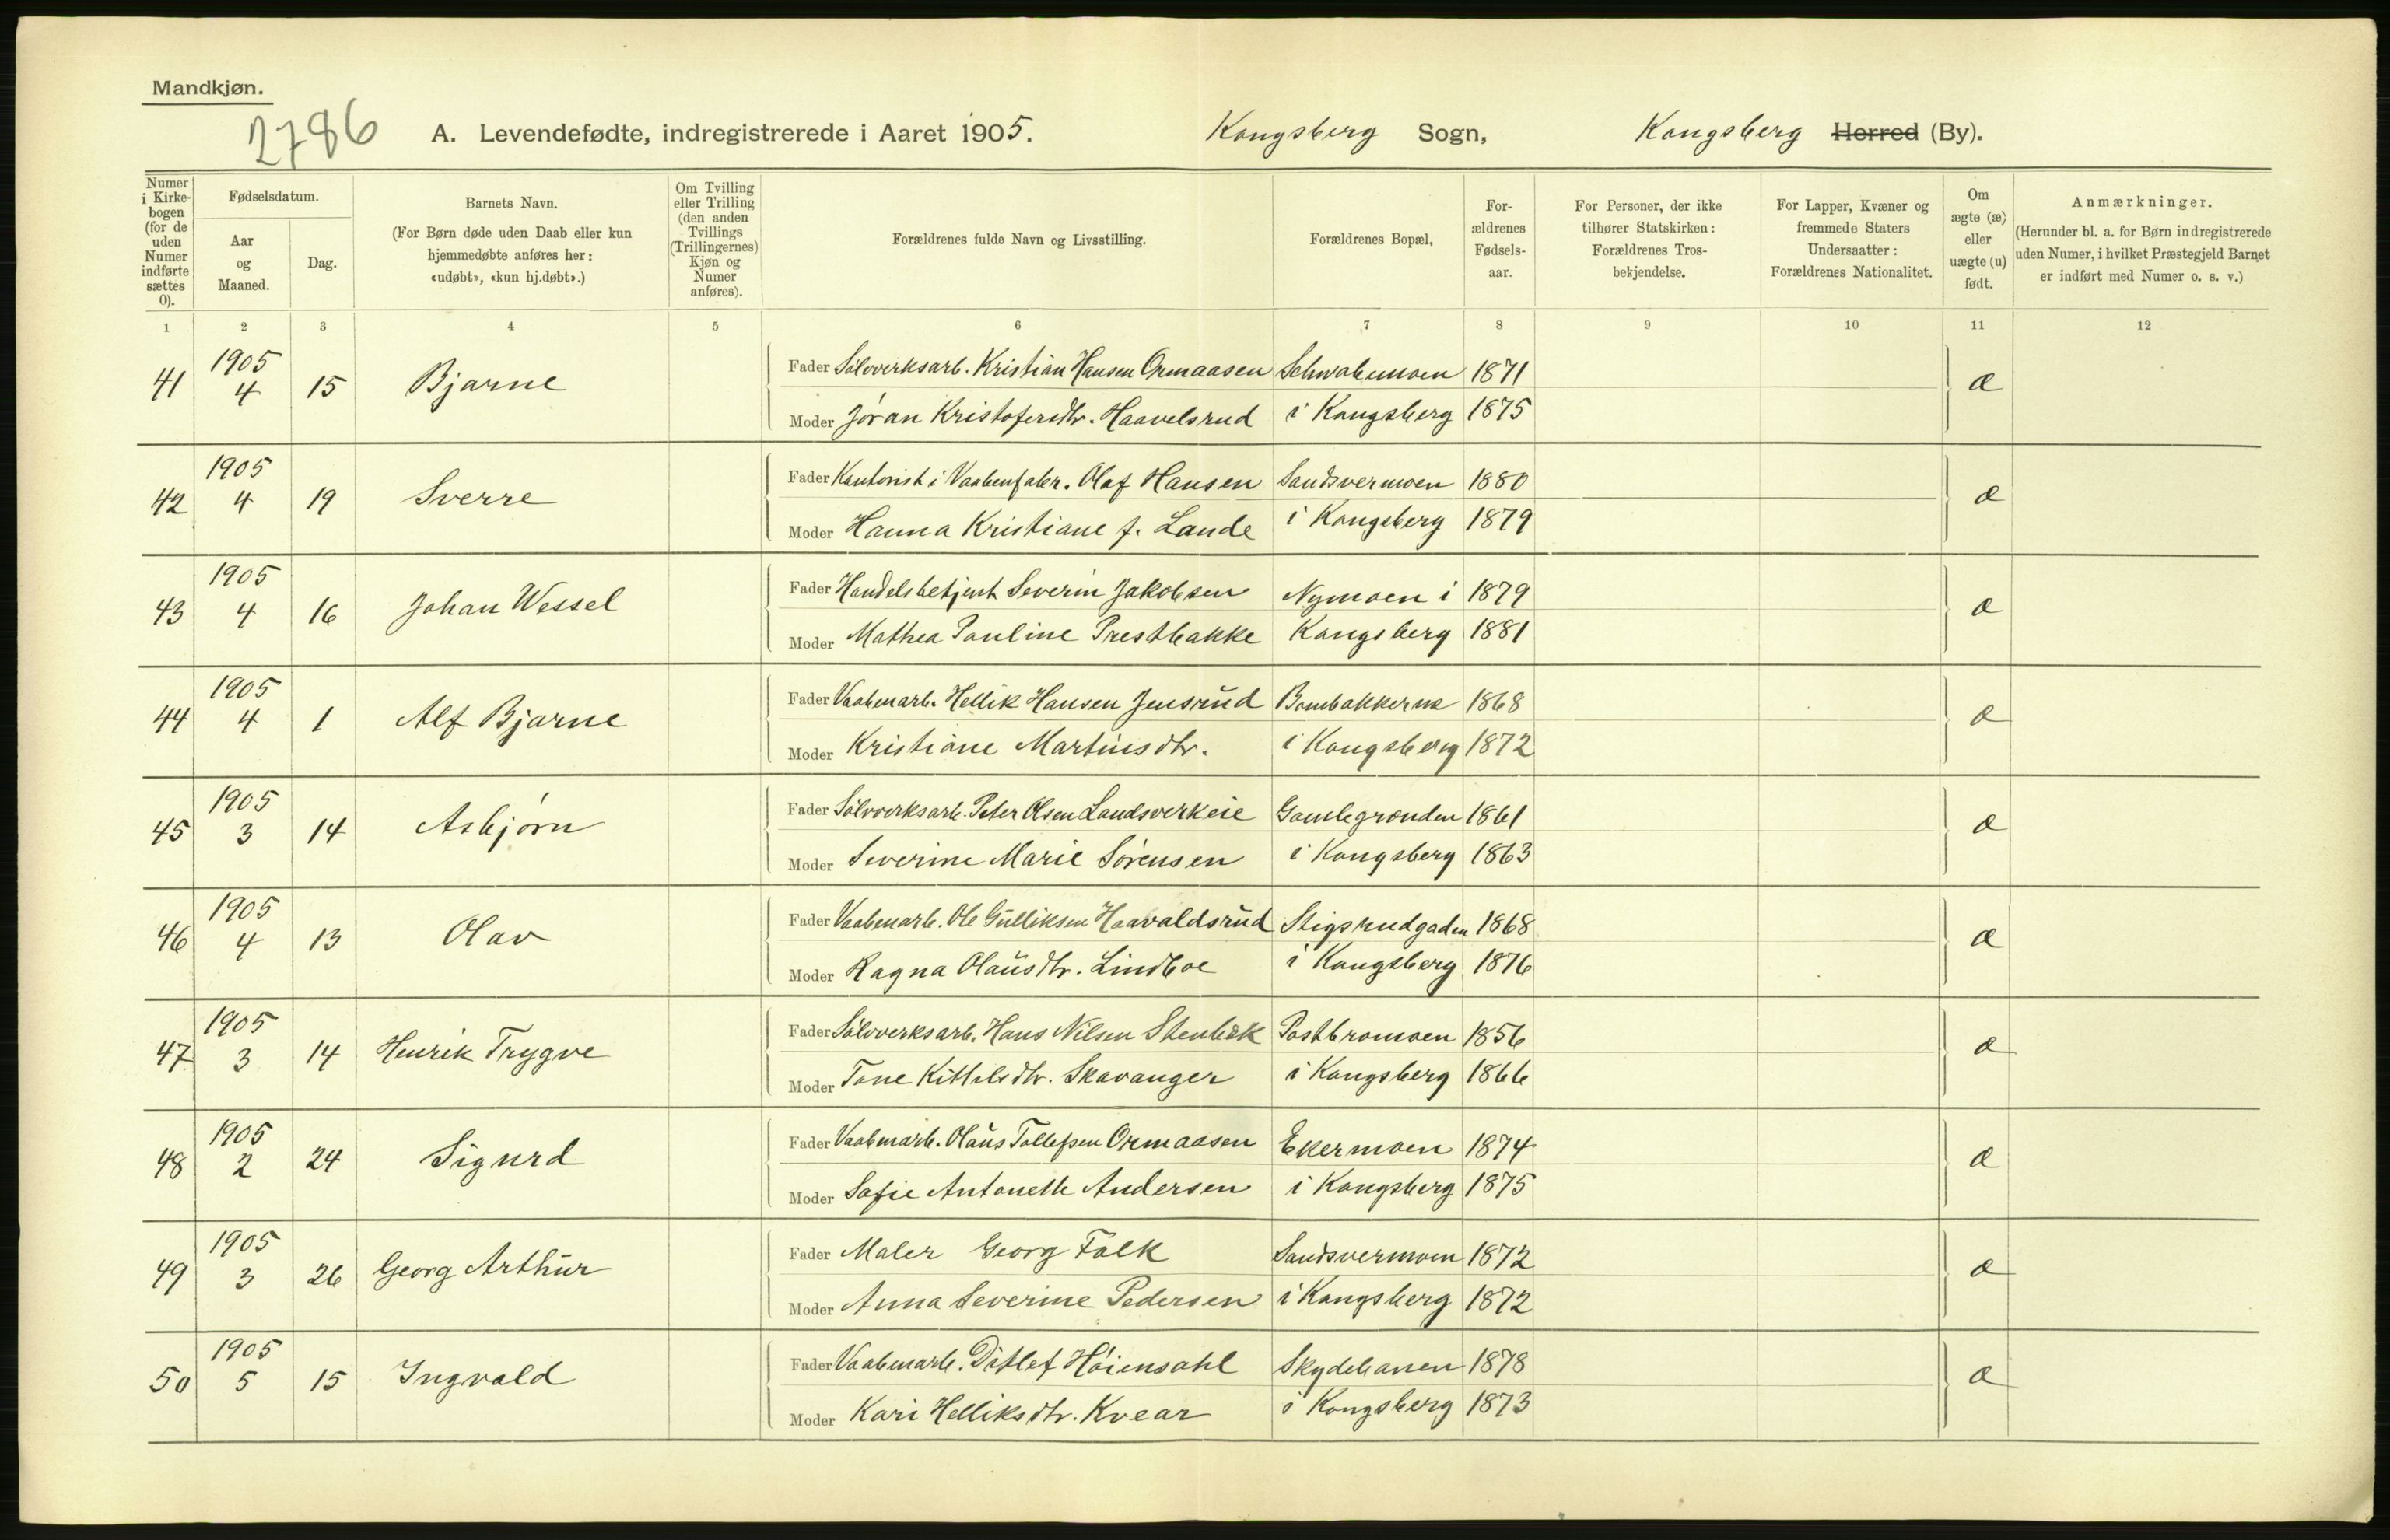 Mandkjøn.
2786
A. Levendefødte, indregistrerede i Aaret 1905. Kongsberg Sogn, Kongsberg Herred (By).
Numer i Kirkebogen (for de uden Numer indførte sættes 0).
Fødselsdatum.
Aar og Maaned.
Dag.
Barnets Navn.
(For Børn døde uden Daab eller kun hjemmedøbte anføres her: «udøbt», «kun hj.døbt».)
Om Tvilling eller Trilling (den anden Tvillings (Trillingernes) Kjøn og Numer anføres).
Forældrenes fulde Navn og Livsstilling.
Forældrenes Bopæl,
Forældrenes Fødselsaar.
For Personer, der ikke tilhører Statskirken: Forældrenes Trosbekjendelse.
For Lapper, Kvæner og fremmede Staters Undersaatter: Forældrenes Nationalitet.
Om ægte (æ) eller uægte (u) født.
Anmærkninger.
(Herunder bl. a. for Børn indregistrerede uden Numer, i hvilket Præstegjeld Barnet er indført med Numer o. s. v.)
1 2 3 4 5 6 7 8 9 10 11 12
41 1905 4 15 Bjarne Fader Sølvverksarb. Kristian Hansen Ormaasen Schwabemoen 1871 æ
Moder Jøran Kristofersdtr. Haavelsrud i Kongsberg 1875
42 1905 4 19 Sverre Fader Kontorist i Vaabenfabr. Olaf Hansen Sandsvermoen 1880 æ
Moder Hanna Kristiane f. Lande i Kongsberg 1879
43 1905 4 16 Johan Wessel Fader Handelsbetjent Severin Jakobsen Nymoen i 1879 æ
Moder Mathea Pauline Prestbakke Kongsberg 1881
44 1905 4 1 Alf Bjarne Fader Vaabenarb. Hellik Hansen Jensrud Bombakkerne 1868 æ
Moder Kristiane Martinsdtr. i Kongsberg 1872
45 1905 3 14 Asbjørn Fader Sølvverksarb. Peter Olsen Landsverkeie Gamlegrønden 1861 æ
Moder Severine Marie Sørensen i Kongsberg 1863
46 1905 4 13 Olav Fader Vaabenarb. Ole Gulliksen Haavaldsrud Stigsrudgaden 1868 æ
Moder Ragna Olausdtr. Lindboe i Kongsberg 1876
47 1905 3 14 Henrik Trygve Fader Sølvverksarb. Hans Nilsen Stenbæk Postbromoen 1856 æ
Moder Tone Kittelsdtr. Skavanger i Kongsberg 1866
48 1905 2 24 Sigurd Fader Vaabenarb. Olaus Tollefsen Ormaasen Ekermoen 1874 æ
Moder Sofie Antonette Andersen i Kongsberg 1875
49 1905 3 26 Georg Arthur Fader Maler Georg Falk Sandsvermoen 1872 æ
Moder Anna Severine Pedersen i Kongsberg 1872
50 1905 5 15 Ingvald Fader Vaabenarb. Ditlef Høiensahl Skydebanen 1878 æ
Moder Kari Helliksdtr. Kvear i Kongsberg 1873